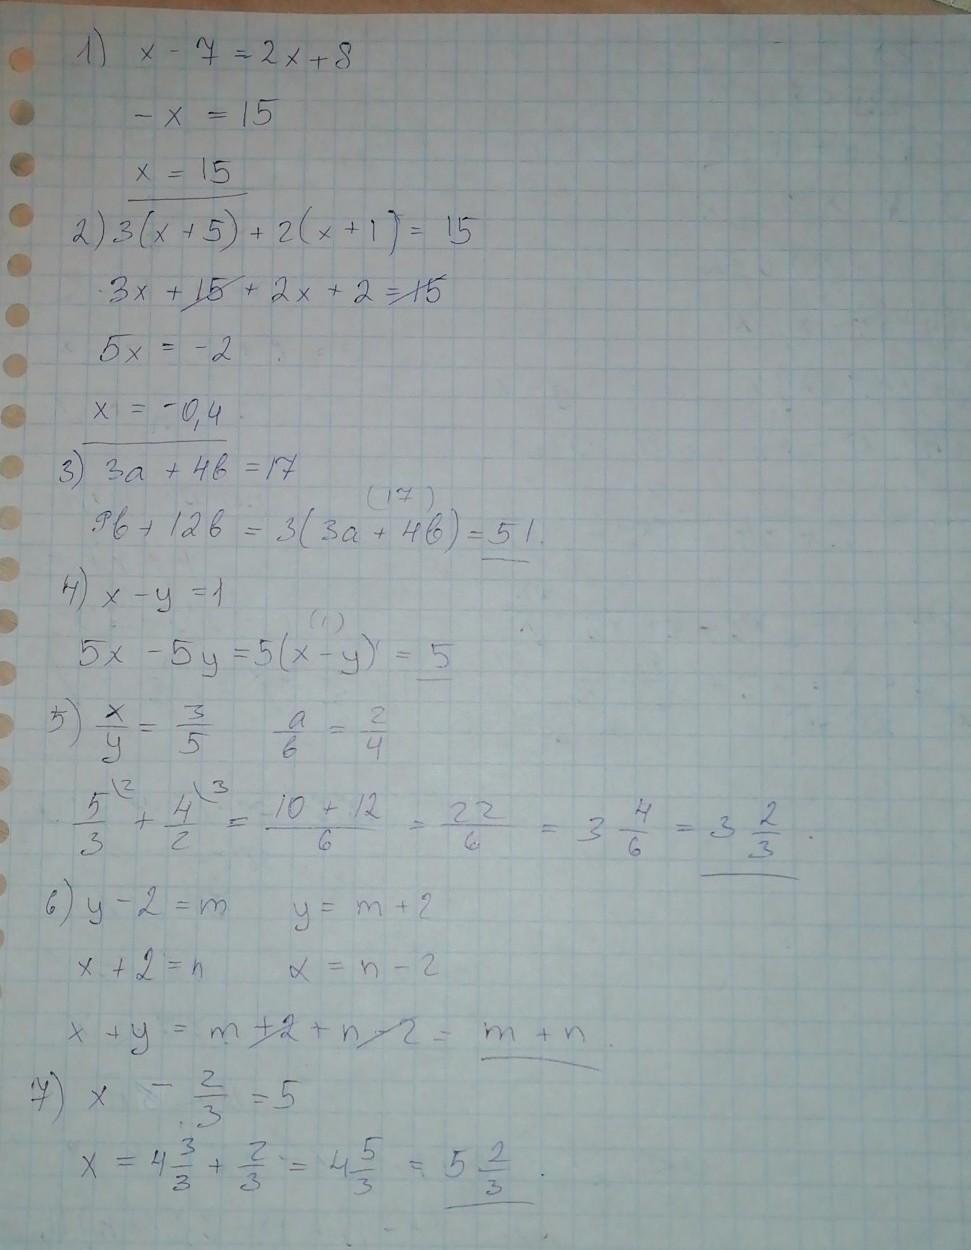 1) x - 7 = 2x + 8
- x = 15
x = 15
2) 3(x + 5) + 2(x + 1) = 15
3x + 15 + 2x + 2 = 15
5x = -2
x = -0,4
3) 3a + 4b = 17
(17)
9b + 12b = 3(3a + 4b) = 51.
4) x - y = 1
(1)
5x - 5y = 5(x - y) = 5
5) x/y = 3/5 a/b = 2/4
5/3 \2 + 4/2 \3 = (10 + 12)/6 = 22/6 = 3 4/6 = 3 2/3.
6) y - 2 = m y = m + 2
x + 2 = n x = n - 2
x + y = m + 2 + n - 2 = m + n.
7) x - 2/3 = 5
x = 4 3/3 + 2/3 = 4 5/3 = 5 2/3.